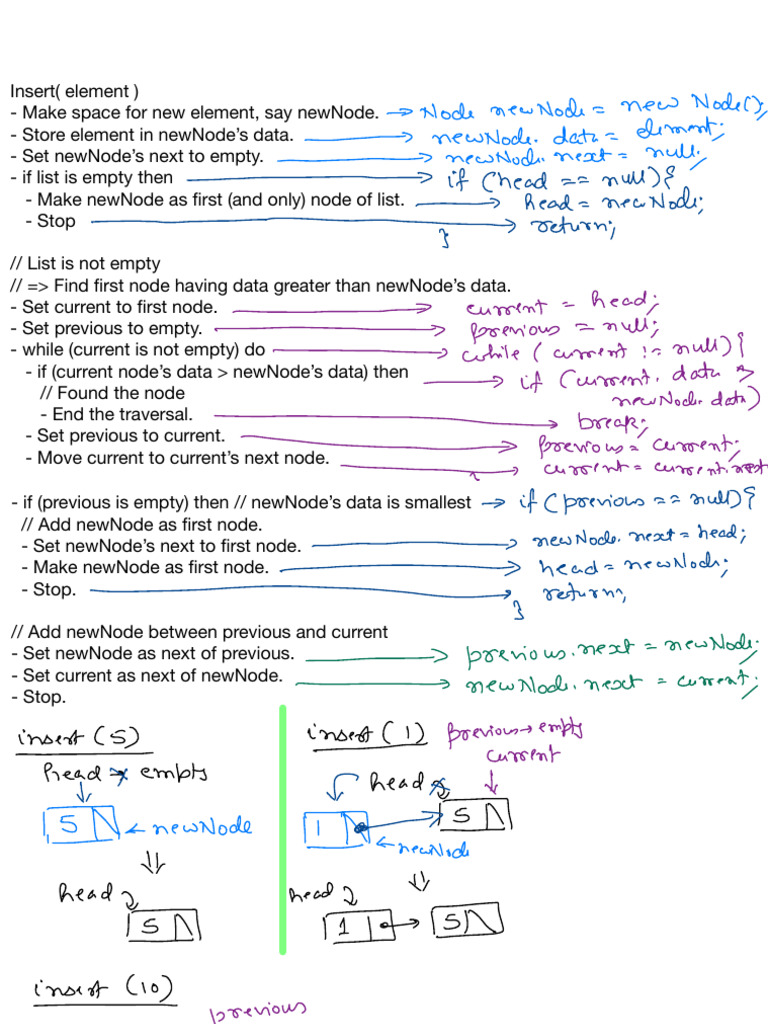 Insert( element )
- Make space for new element, say newNode. → Node newNode = new Node();
- Store element in newNode's data. → newNode. data = element;
- Set newNode's next to empty. → newNode. next = null;
- if list is empty then → if (head == null){
- Make newNode as first (and only) node of list. → head = newNode;
- Stop → return;
}
// List is not empty
// => Find first node having data greater than newNode's data.
- Set current to first node. → current = head;
- Set previous to empty. → previous = null;
- while (current is not empty) do → while ( current != null) {
- if (current node's data > newNode's data) then → if (current. data >
// Found the node newNode. data)
- End the traversal. → break;
- Set previous to current. → previous = current;
- Move current to current's next node. → current = current.next
}
- if (previous is empty) then // newNode's data is smallest → if (previous == null){
// Add newNode as first node.
- Set newNode's next to first node. → newNode. next = head;
- Make newNode as first node. → head = newNode;
- Stop. → return;
}
// Add newNode between previous and current
- Set newNode as next of previous. → previous.next = newNode;
- Set current as next of newNode. → newNode. next = current;
- Stop.
insert (5)
head → empty
5
← newNode
head
5
insert ( 1 )
previous → empty
current
head
1
5
← newNode
head
1
5
insert (10)
previous